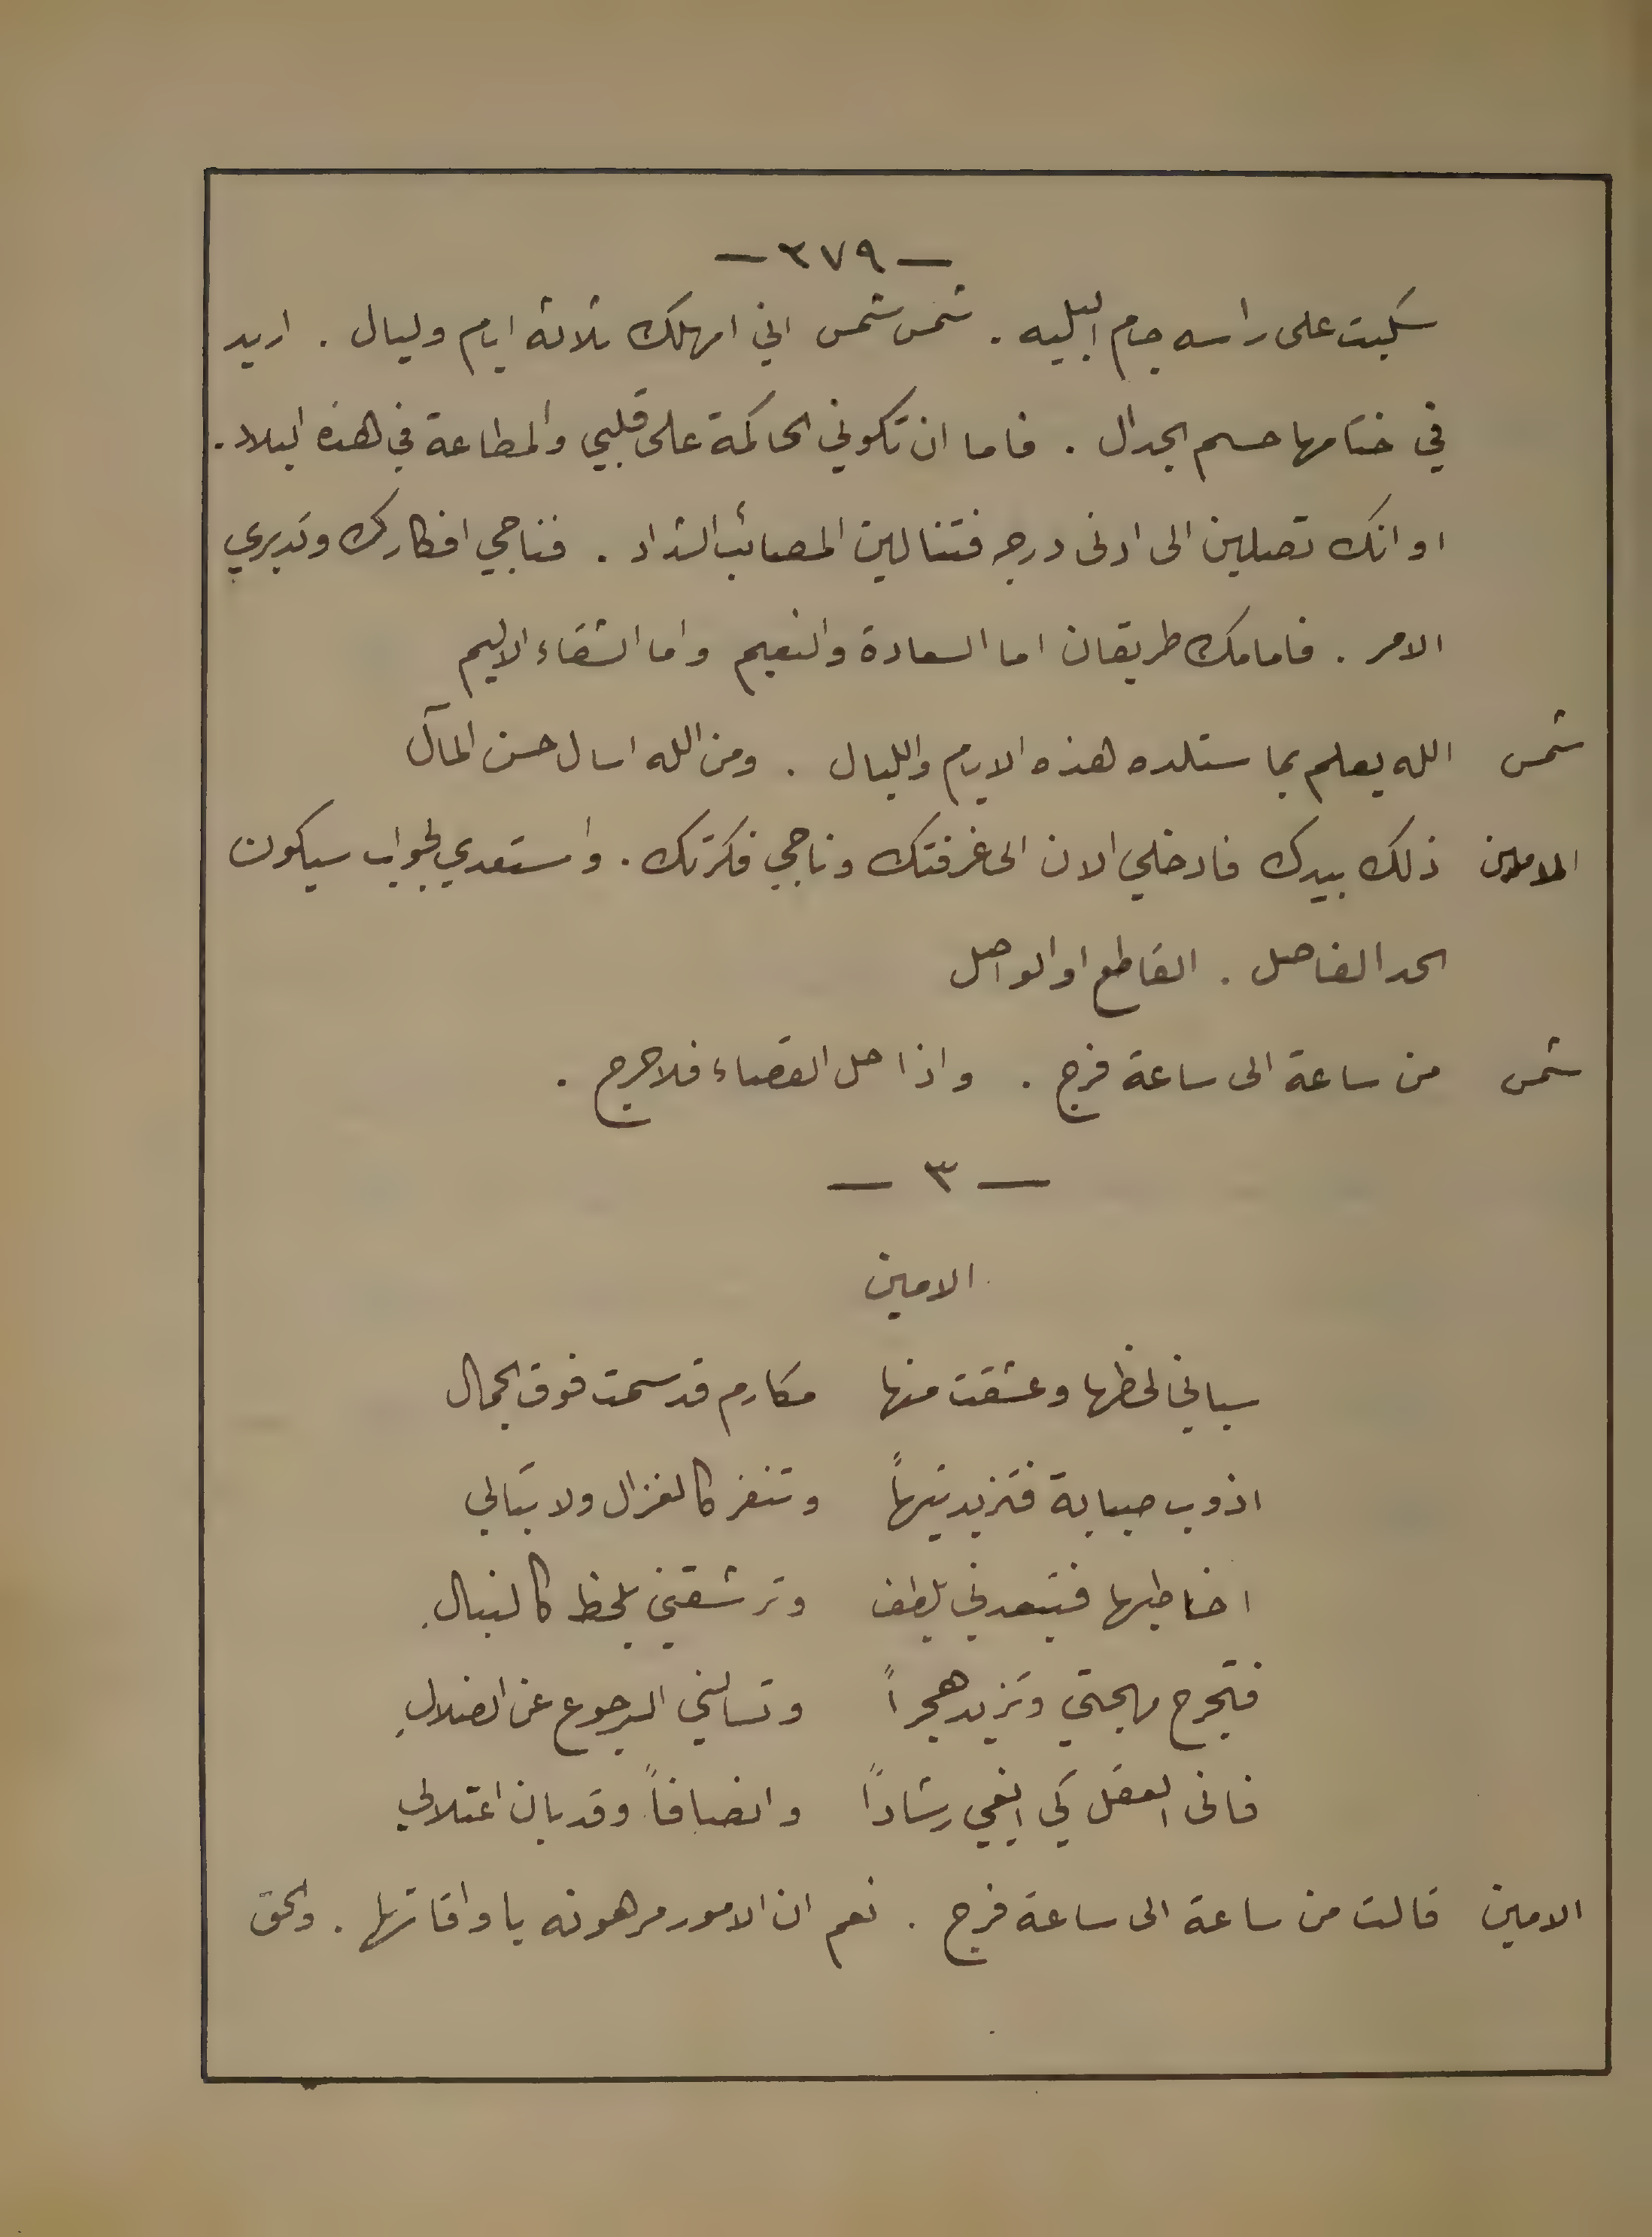 — ٣٧٩ —
سكبت على راسه جام البليه . شمس شمس اني امهلك ثلاثة ايام وليال . اريد
في ختامها حسم الجدال . فاما ان تكوني الحاكمة على قلبي والمطاعة في هذه البلاد .
او انك تصلين الى ادنى درجه فتنالين المصائب الشداد . فناجي افكارك وتدبري
الامر . فامامك طريقان اما السعادة والنعيم واما الشقاء الاليم
شمس الله يعلم بما ستلده هذه الايام والليال . ومن الله اسال حسن المآل
الامين ذلك بيدك فادخلي الان الى غرفتك وناجي فكرتك . واستعدي لجواب سيكون
الحد الفاصل . القاطع او الواصل
شمس من ساعة الى ساعة فرج . واذا حل القضاء فلا حرج .
— ٣ —
الامين
سباني لحظها وعشقت منها مكارم قد سمت فوق الجمال
اذوب صبابة فتزيد تيهاً وتنفر كالغزال ولا تبالي
اخاطبها فتبعدني بلطف وترشقني بلحظ كالنبالِ
فتجرح مهجتي وتزيد هجراً وتسالني الرجوع عن الضلالِ
فانى العقل كي ابغي رشاداً وانصافاً وقد بان اعتلالي
الامين قالت من ساعة الى ساعة فرج . نعم ان الامور مرهونه باوقاتها . والحق